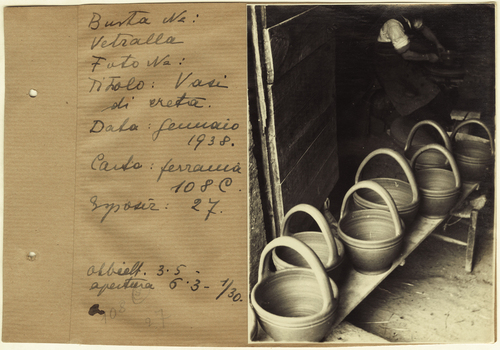 Busta No:
Vetralla
Foto No:
Titolo: Vasi
di creta.
Data: gennaio
1938.
Carta: ferrania
108 C.
Esposiz: 27.
obbiett. 3.5 -
apertura 6.3 - 1/30.